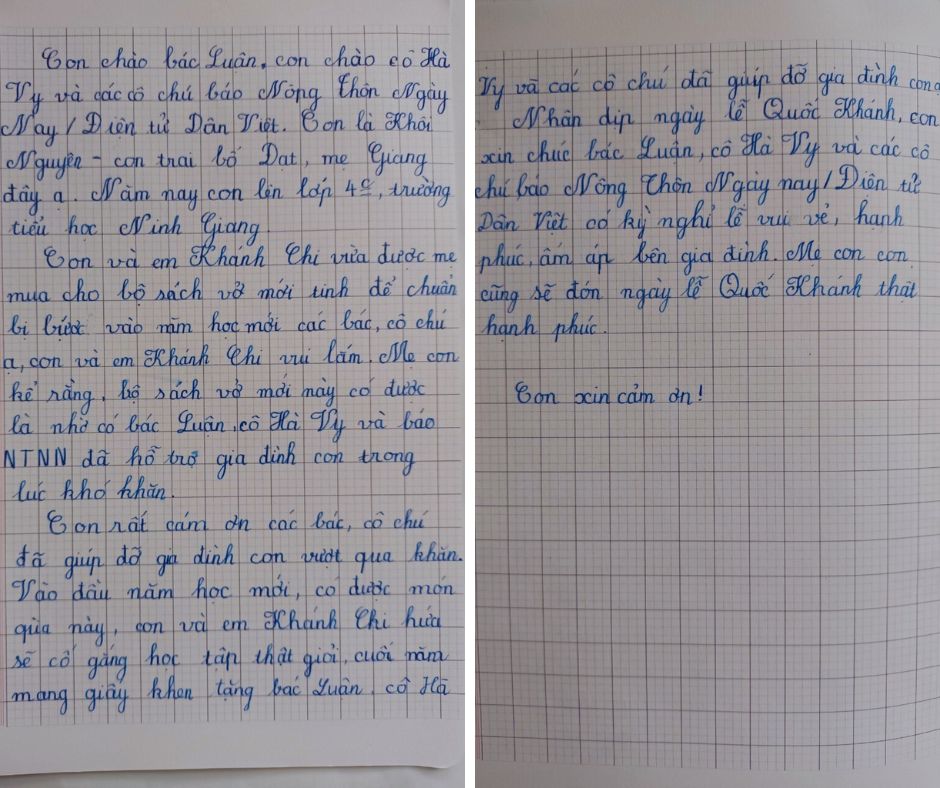 Con chào bác Luân, con chào cô Hà
Vy và các cô chú báo Nông Thôn Ngày
Nay / Điện tử Dân Việt. Con là Khôi
Nguyên - con trai bố Đạt, mẹ Giang
đây ạ. Năm nay con lên lớp 4C, trường
tiểu học Ninh Giang.
Con và em Khánh Chi vừa được mẹ
mua cho bộ sách vở mới tinh để chuẩn
bị bước vào năm học mới các bác, cô chú
ạ, con và em Khánh Chi vui lắm. Mẹ con
kể rằng, bộ sách vở mới này có được
là nhờ có bác Luân, cô Hà Vy và báo
NTNN đã hỗ trợ gia đình con trong
lúc khó khăn.
Con rất cám ơn các bác, cô chú
đã giúp đỡ gia đình con vượt qua khăn.
Vào đầu năm học mới, có được món
qùa này, con và em Khánh Chi hứa
sẽ cố gắng học tập thật giỏi, cuối năm
mang giấy khen tặng bác Luân, cô Hà
Vy và các cô chú đã giúp đỡ gia đình con
Nhân dịp ngày lễ Quốc Khánh, con
xin chúc bác Luân, cô Hà Vy và các cô
chú báo Nông Thôn Ngày nay / Điện tử
Dân Việt có kỳ nghỉ lễ vui vẻ, hạnh
phúc, ấm áp bên gia đình. Mẹ con con
cũng sẽ đón ngày lễ Quốc Khánh thật
hạnh phúc.
Con xin cảm ơn!